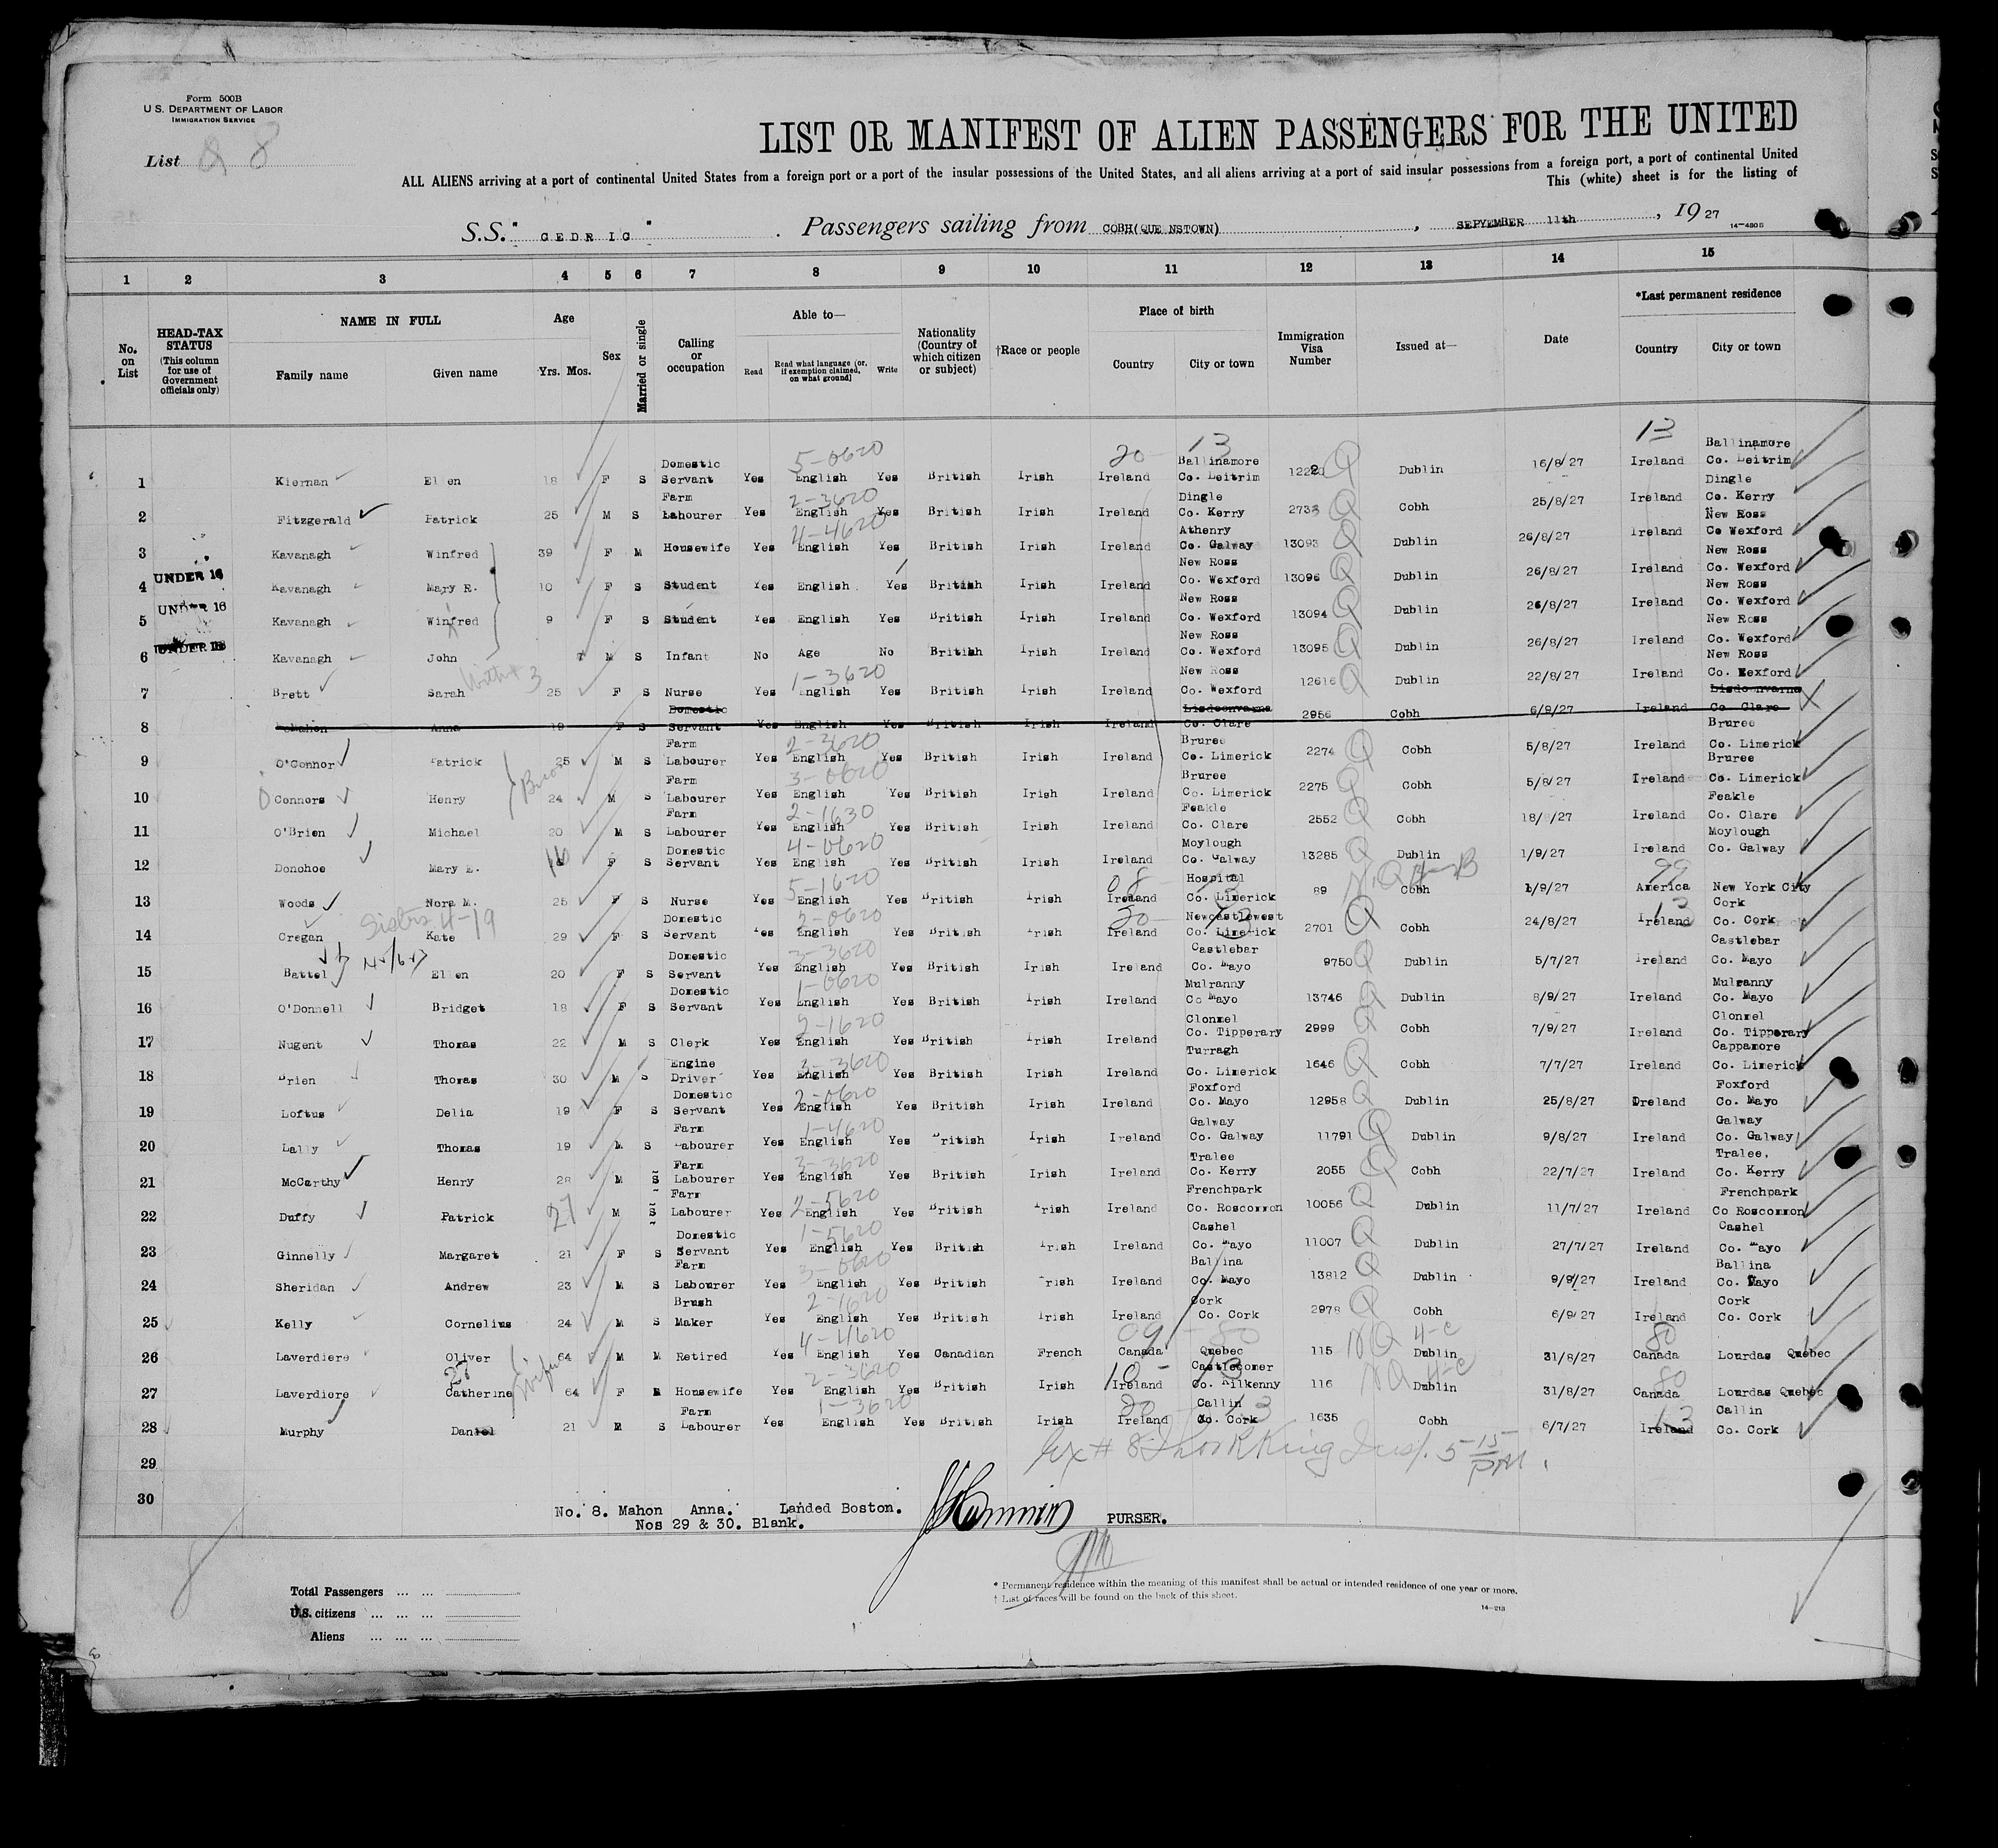 Form 500B
U.S. DEPARTMENT OF LABOR
IMMIGRATION SERVICE
List 8
LIST OR MANIFEST OF ALIEN PASSENGERS FOR THE UNITED
ALL ALIENS arriving at a port of continental United States from a foreign port or a port of the insular possessions of the United States, and all aliens arriving at a port of said insular possessions from a foreign port, a port of continental United
This (white) sheet is for the listing of
S.S. " CEDRIC " . Passengers sailing from COBH(QUE NSTOWN) , SEPYEMBER 11th , 19 27
14-430B
1 2 3 4 5 6 7 8 9 10 11 12 13 14 15
No. on List
HEAD-TAX STATUS (This column for use of Government officials only)
NAME IN FULL Family name Given name
Age Yrs. Mos.
Sex
Married or single
Calling or occupation
Able to— Read Read what language (or, if exemption claimed, on what ground) Write
Nationality (Country of which citizen or subject)
†Race or people
Place of birth Country City or town
Immigration Visa Number
Issued at—
Date
*Last permanent residence Country City or town
5-0620 20 13 13
1 Kiernan Ellen 18 F S Domestic Servant Yes English Yes British Irish Ireland Ballinamore Co. Leitrim Q Dublin 16/8/27 Ireland Ballinamore Co. Leitrim
2-3620
2 Fitzgerald Patrick 25 M S Farm Labourer Yes English Yes British Irish Ireland Dingle Co. Kerry 2733 Q Cobh 25/8/27 Ireland Dingle Co. Kerry
4-4620
3 Kavanagh Winfred 39 F M Housewife Yes English Yes British Irish Ireland Athenry Co. Galway 13093 Q Dublin 26/8/27 Ireland New Ross Co Wexford
UNDER 16
4 Kavanagh Mary R. 10 F S Student Yes English Yes British Irish Ireland New Ross Co. Wexford 13096 Q Dublin 26/8/27 Ireland New Ross Co. Wexford
UNDER 16
5 Kavanagh Winfred 9 F S Student Yes English Yes British Irish Ireland New Ross Co. Wexford 13094 Q Dublin 26/8/27 Ireland New Ross Co. Wexford
UNDER 16
6 Kavanagh John M S Infant No Age No British Irish Ireland New Ross Co. Wexford 13095 Q Dublin 26/8/27 Ireland New Ross Co. Wexford
with 3 1-3620
7 Brett Sarah 25 F S Nurse Yes English Yes British Irish Ireland New Ross Co. Wexford 12616 Q Dublin 22/8/27 Ireland New Ross Co. Wexford
8 Mahon Anna 19 F S Domestic Servant Yes English Yes British Irish Ireland Lisdoonvarna Co. Clare 2956 Cobh 6/9/27 Ireland Lisdoonvarna Co. Clare X
2-3620
9 O'Connor Patrick 25 M S Farm Labourer Yes English Yes British Irish Ireland Bruree Co. Limerick 2274 Q Cobh 5/8/27 Ireland Bruree Co. Limerick
3-0620
10 O Connors Henry 24 M S Farm Labourer Yes English Yes British Irish Ireland Bruree Co. Limerick 2275 Q Cobh 5/8/27 Ireland Bruree Co. Limerick
2-1630
11 O'Brien Michael 20 M S Farm Labourer Yes English Yes British Irish Ireland Feakle Co. Clare 2552 Q Cobh 18/ /27 Ireland Feakle Co. Clare
4-0620
12 Donohoe Mary E. F S Domestic Servant Yes English Yes British Irish Ireland Moylough Co. Galway 13285 Q Dublin 1/9/27 Ireland Moylough Co. Galway
5-1620 08 99
13 Woods Nora M. 25 F S Nurse Yes English Yes British Irish Ireland Hospital Co. Limerick 89 Cobh 1/9/27 America New York City
Sister 4-19 3-0620 20 13
14 Cregan Kate 29 F S Domestic Servant Yes English Yes British Irish Ireland Newcastlewest Co. Limerick 2701 Q Cobh 24/8/27 Ireland Cork Co. Cork
3-3620
15 Battel Ellen 20 F S Domestic Servant Yes English Yes British Irish Ireland Castlebar Co. Mayo 9750 Q Dublin 5/7/27 Ireland Castlebar Co. Mayo
1-0620
16 O'Donnell Bridget 18 F S Domestic Servant Yes English Yes British Irish Ireland Mulranny Co Mayo 13746 Q Dublin 8/9/27 Ireland Mulranny Co. Mayo
2-1620
17 Nugent Thomas 22 M S Clerk Yes English Yes British Irish Ireland Clonmel Co. Tipperary 2999 Q Cobh 7/9/27 Ireland Clonmel Co. Tipperary
3-3620
18 Brien Thomas 30 M S Engine Driver Yes English Yes British Irish Ireland Turragh Co. Limerick 1646 Q Cobh 7/7/27 Ireland Cappamore Co. Limerick
2-0620
19 Loftus Delia 19 F S Domestic Servant Yes English Yes British Irish Ireland Foxford Co. Mayo 12958 Q Dublin 25/8/27 Dreland Foxford Co. Mayo
1-4620
20 Lally Thomas 19 M S Farm Labourer Yes English Yes British Irish Ireland Galway Co. Galway 11791 Q Dublin 9/8/27 Ireland Galway Co. Galway
3-3620
21 McCarthy Henry 28 M S Farm Labourer Yes English Yes British Irish Ireland Tralee Co. Kerry 2055 Q Cobh 22/7/27 Ireland Tralee, Co. Kerry
2-5620
22 Duffy Patrick 27 M S Farm Labourer Yes English Yes British Irish Ireland Frenchpark Co. Roscommon 10056 Q Dublin 11/7/27 Ireland Frenchpark Co Roscommon
1-5620
23 Ginnelly Margaret 21 F S Domestic Servant Yes English Yes British Irish Ireland Cashel Co. Mayo 11007 Q Dublin 27/7/27 Ireland Cashel Co. Mayo
3-0620
24 Sheridan Andrew 23 M S Farm Labourer Yes English Yes British Irish Ireland Ballina Co. Mayo 13812 Q Dublin 9/9/27 Ireland Ballina Co. Mayo
2-1620
25 Kelly Cornelius 24 M S Brush Maker Yes English Yes British Irish Ireland Cork Co. Cork 2978 Q Cobh 6/9/27 Ireland Cork Co. Cork
4-4620 09 - 80 NQ 4-c 80
26 Laverdiere Oliver 64 M M Retired Yes English Yes Canadian French Canada Quebec 115 Dublin 31/8/27 Canada Lourdas Quebec
27 wife 2-3620 10 - 13 NQ 4-c 80
27 Laverdiere Catherine 64 F Housewife Yes English Yes British Irish Ireland Castlecomer Co. Kilkenny 116 Dublin 31/8/27 Canada Lourdas Quebec
1-3620 20 13 13
28 Murphy Daniel 21 M S Farm Labourer Yes English Yes British Irish Ireland Callin Co. Cork 1635 Cobh 6/7/27 Ireland Callin Co. Cork
29
Ex # 8 King Insp. 5-15 PM.
30
No. 8. Mahon Anna. Landed Boston.
Nos 29 & 30. Blank.
PURSER.
Total Passengers ... ...
U.S. citizens ... ... ...
Aliens ... ... ...
* Permanent residence within the meaning of this manifest shall be actual or intended residence of one year or more.
† List of races will be found on the back of this sheet.
14-213